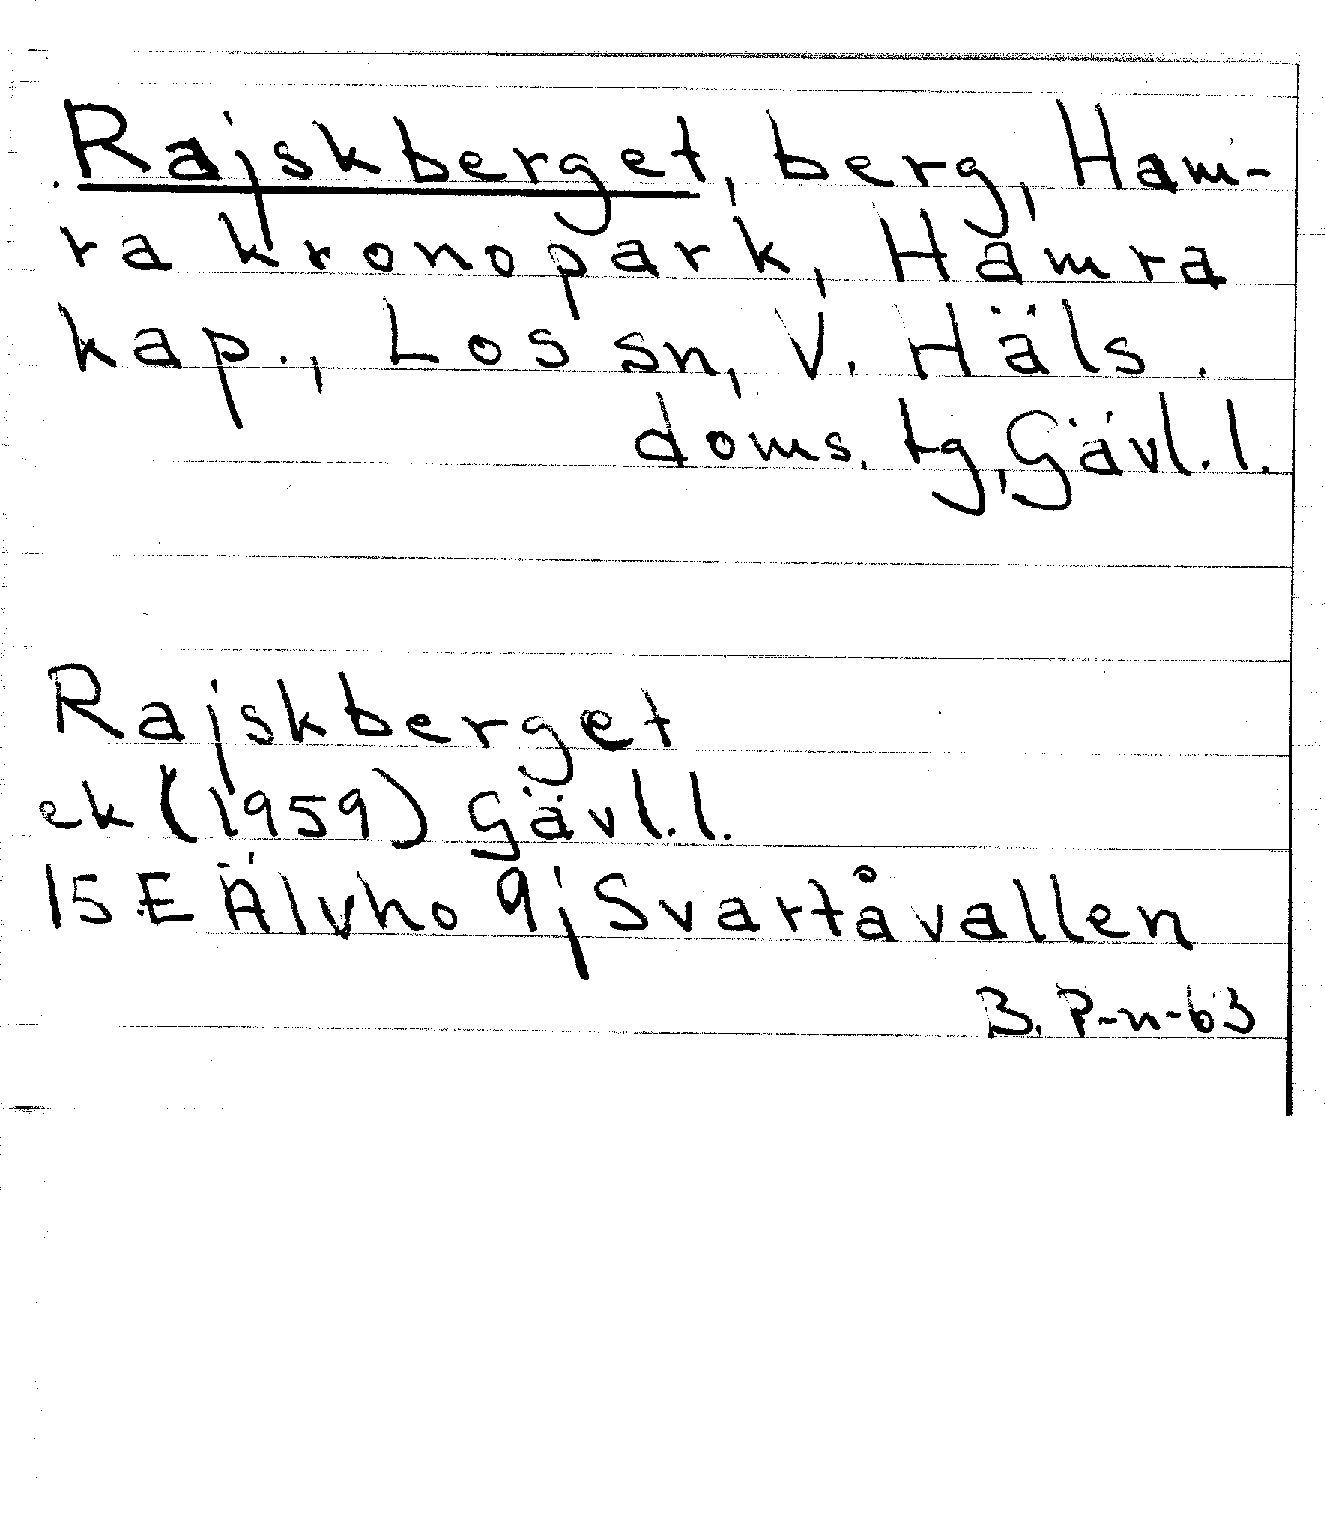 Rajskberget, berg, Ham-
ra kronopark, Hamra
kap., Los sn, V. Häls.
doms. tg, Gävl. l.
Rajskberget
ek (1959) Gävl. l.
15 E Älvho 9j Svartåvallen
B. P-n-63